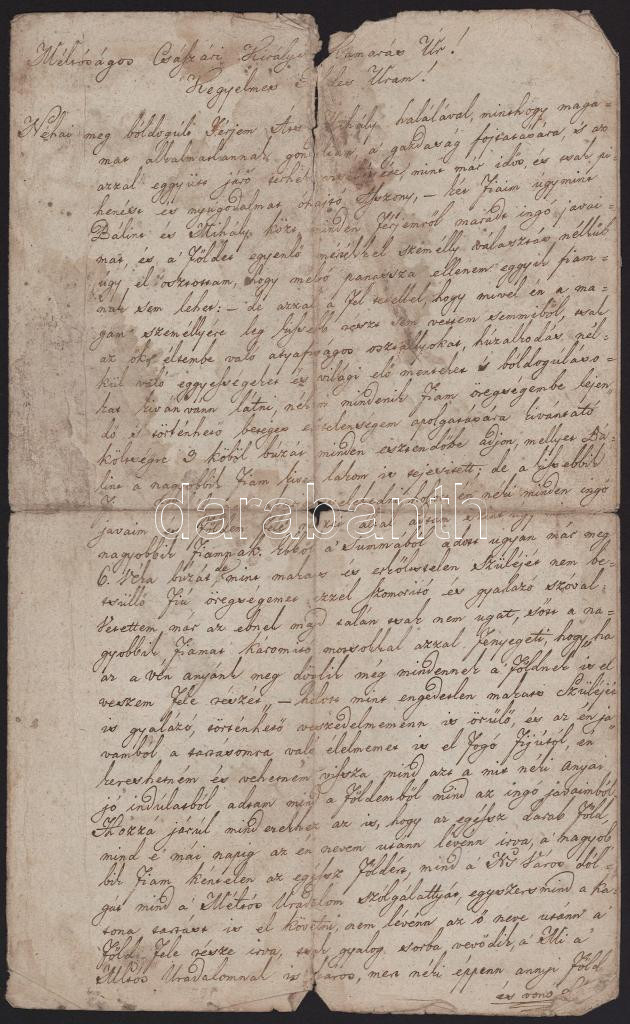 Méltóságos Császári Királyi Kamarás Úr!
Kegyelmes Uram!
Néhai meg boldogúlt Férjem Mihály halálával, minthogy maga-
mat alkalmatlannak a gazdaság fojtatására, s az
azzal eggyütt járó terhek mint már idős, és csak pi-
henést és nyúgodalmat ohajtó Aszony, – két Fiaim úgymint
Bálint és Mihály közt minden Férjemről maradt ingó javai-
mat, és a Földet egyenlő mértékkel személly választás nélkül
úgy el osztottam, hogy méltó panassza ellenem eggyik fiam-
nak sem lehet: – de azzal a fel tétellel, hogy mivel én a ma-
gam személlyére leg kissebb részt sem vettem semmiből, csak
az ők éltembe való atyafiságos osztályokat, húzalkodás nél-
kül való eggyességeket és világi elő menetelek s boldogúláso-
kat kivánván látni, nékem mindenik Fiam öregségembe lejen-
dő s történhető beteges ápolgatására kivántató
költségre 3 köböl búzát minden esztendőbe adjon, mellyet Bá-
lint a nagyobbik Fiam is tejesített; de a kissebbik
néki minden ingó
javaim
nagyobbik Fiamnak. Ebből a summából adott ugyan már meg
6. Véka búzát de mint makacs és erkölcstelen Szüléjét nem be-
tsüllő Fiú öregségemet ezzel szomorító és gyalázó szóval
tetettem, már az ebnek majd talán csak nem ugat, sőtt a na-
gyobbik Fiamat káromító motsokkal azzal fenyegeti, hogy ha
az a vén anyánk meg döglik még mindennek a Földnek is el
veszem fele részét, – holott mint engedetlen makats Szüléjét
is gyalázó, történhető veszedelmemenn is örülő, és az én ja-
vamból a tartásomra való élelmemet is el fogó Fijútól, én
kereshetném és vehetném vissza mind azt a mit néki Anyai
jó indúlatból adtam mind a Földemből mind az ingó javaimból
Hozzá járúl mind ezekhez az is, hogy az egéssz darab Föld
mind e mái napig az én nevem utánn lévénn irva, a nagyob-
bik Fiam kéntelen az egéssz Földért, mind a Kis Város dol-
gát mind a Méltós Uradalom szólgálattyát, egyszersmind a ka-
tona tartást is el követni, nem lévénn az ő neve utánn a
Föld fele része irva, csak gyalog sorba vevődik, a Mi a
Méltós Uradalomnak is káros, mert néki éppenn annyi Föld
és vonó
darabanth